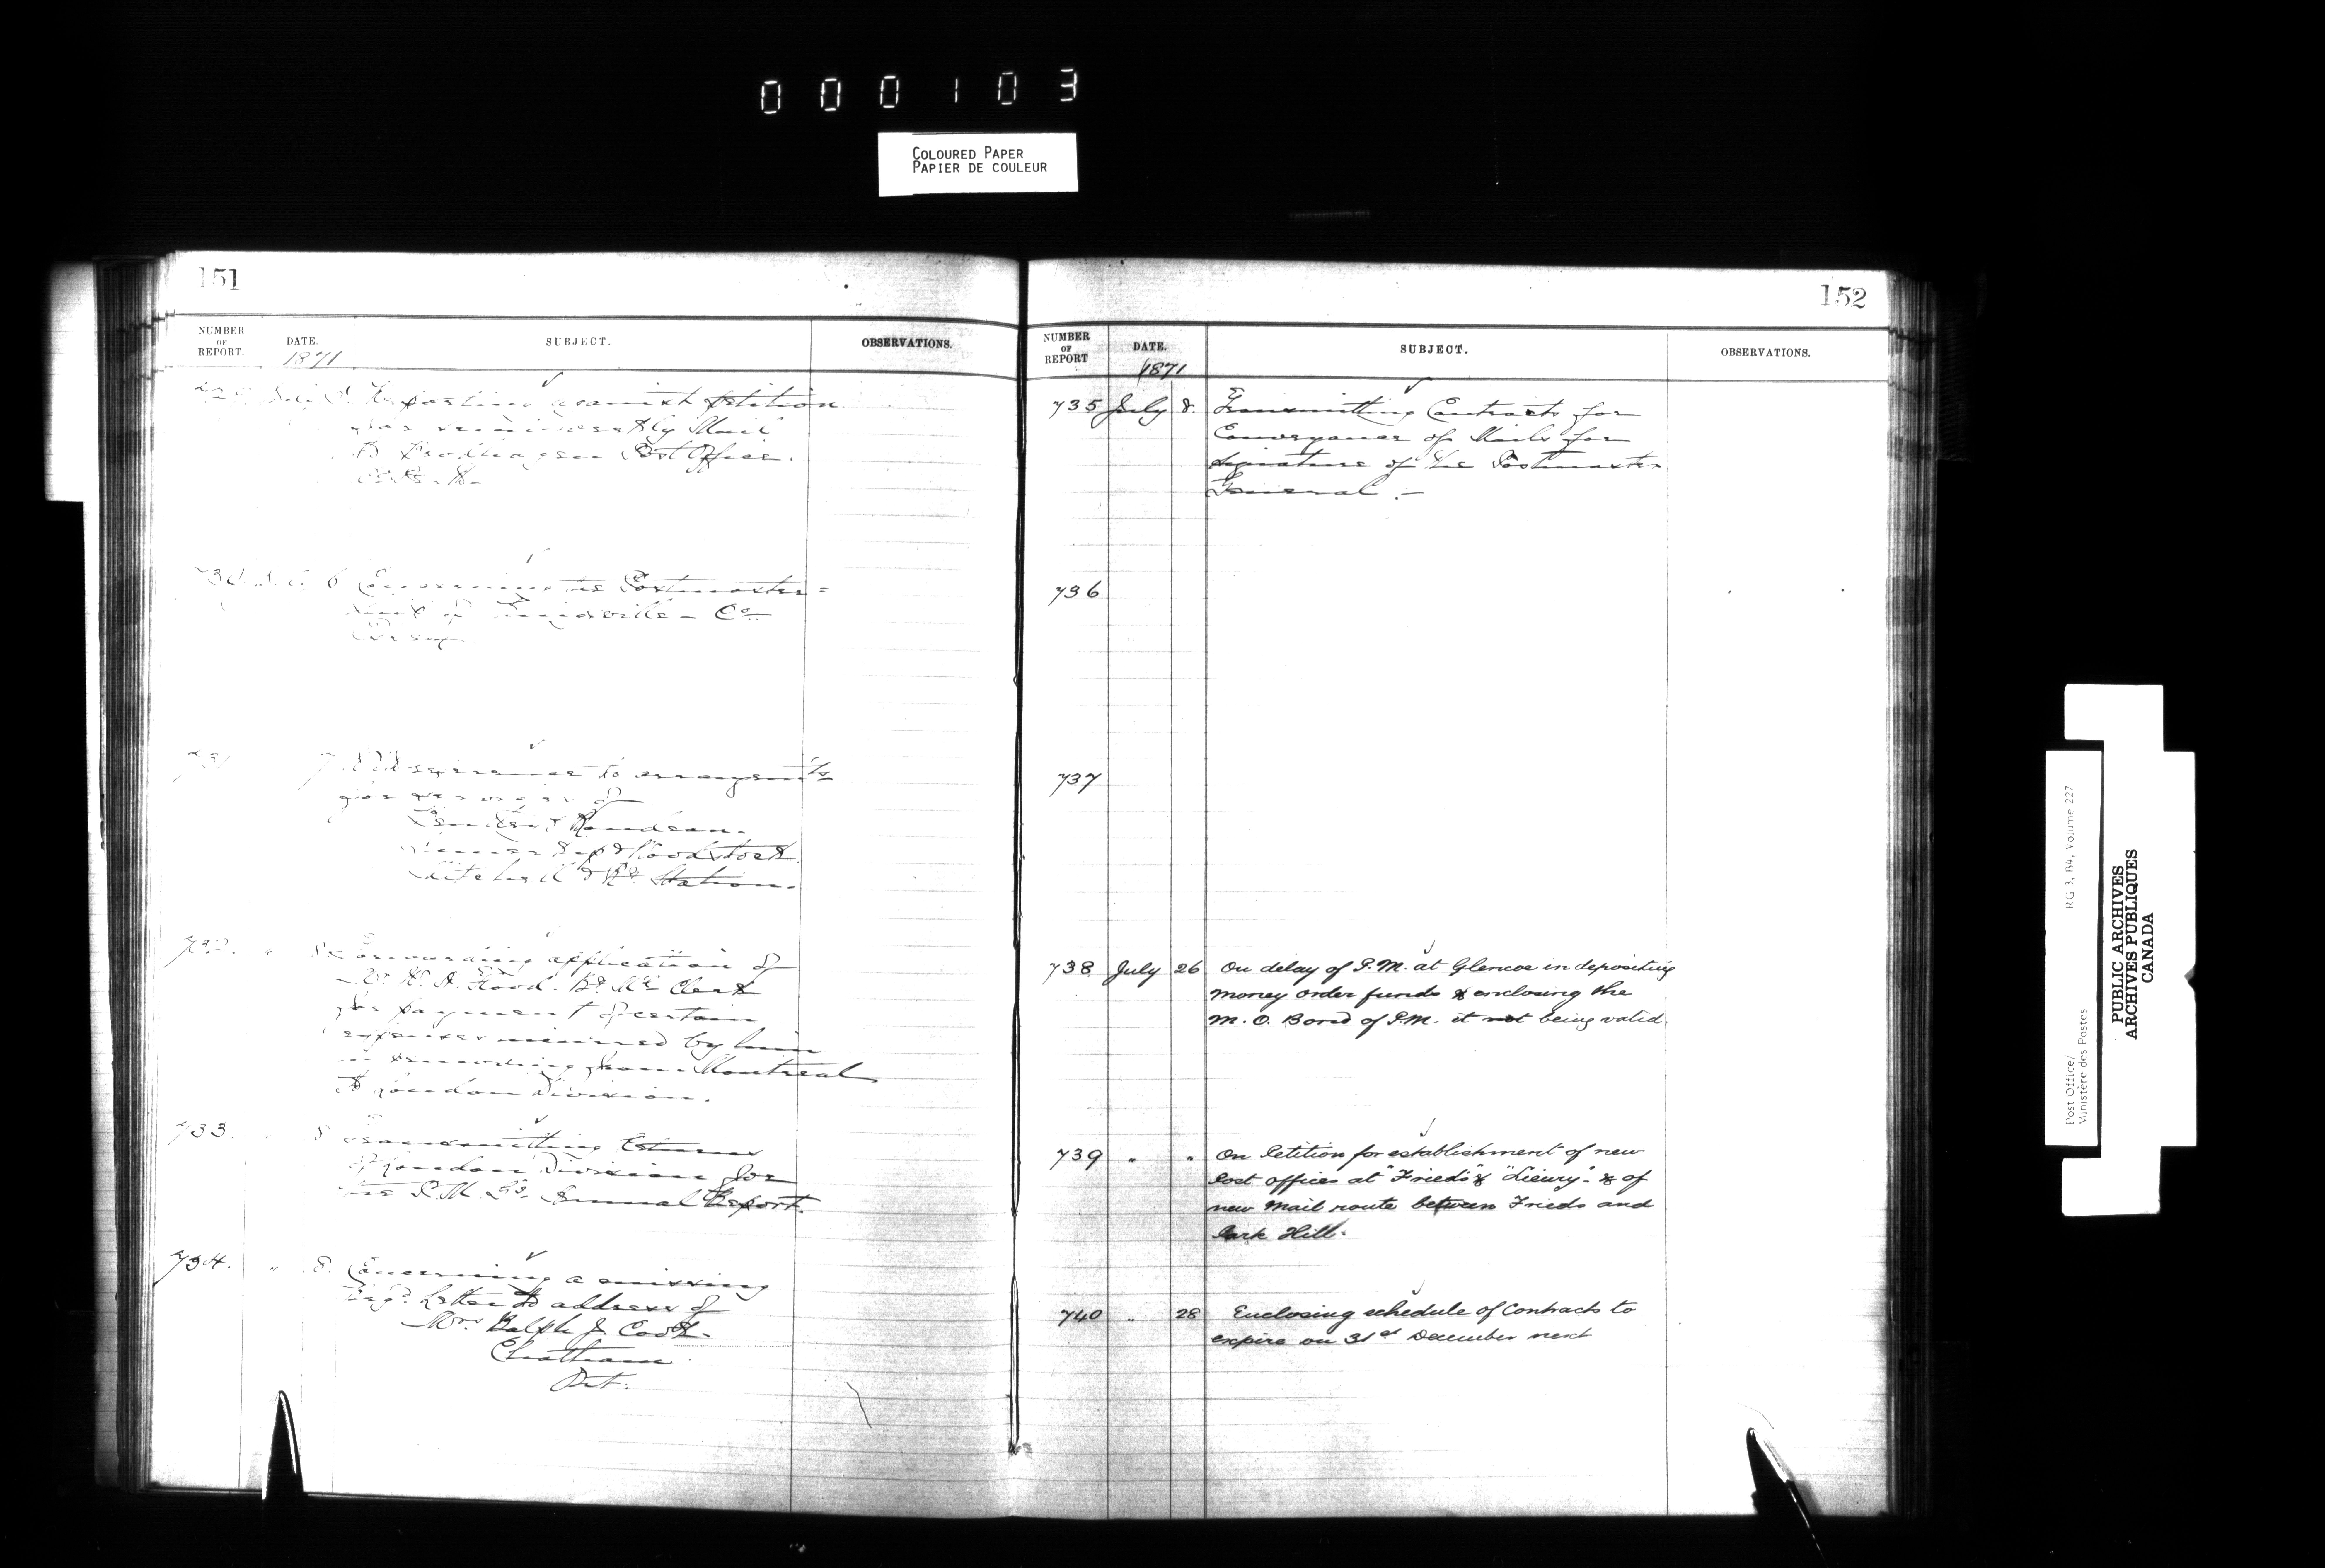 000103
COLOURED PAPER
PAPIER DE COULEUR
151
NUMBER OF REPORT.
DATE.
1871
SUBJECT.
OBSERVATIONS.
Reporting against petition
for semi-weekly Mail
to Brodhagen Post Office.
6 Concerning the Postmaster=
ship of ville - Co.
7 With reference to arrangemts
for service of
London & Rondeau.
& Woodstock
Mitchell & Ry Station.
732. " 8 Forwarding application of
Mr. H. A. Flood. Ry Ml Clerk
for payment of certain
expenses incurred by him
in removing from Montreal
to London Division.
733. " 8 Transmitting Returns
of London Division for
the P.M.G's. Annual Report.
734. " 8. Concerning a missing
regd. Letter to address of
Mrs Ralph J. Cook.
Chatham
Ont.
152
NUMBER OF REPORT
DATE.
1871
SUBJECT.
OBSERVATIONS.
735 July 8. Transmitting Contracts for
Conveyance of Mails for
signature of the Postmaster
General.-
736
737
738 July 26 On delay of P.M. at Glencoe in depositing
money order funds & enclosing the
M. O. Bond of P.M. it not being valid.
739 " " On Petition for establishment of new
Post offices at "Frieds" & "Lieury" & of
new Mail route between Frieds and
Park Hill.
740 " 28 Enclosing schedule of Contracts to
expire on 31st December next
Post Office/
Ministère des Postes
RG 3, B4, Volume 227
PUBLIC ARCHIVES
ARCHIVES PUBLIQUES
CANADA